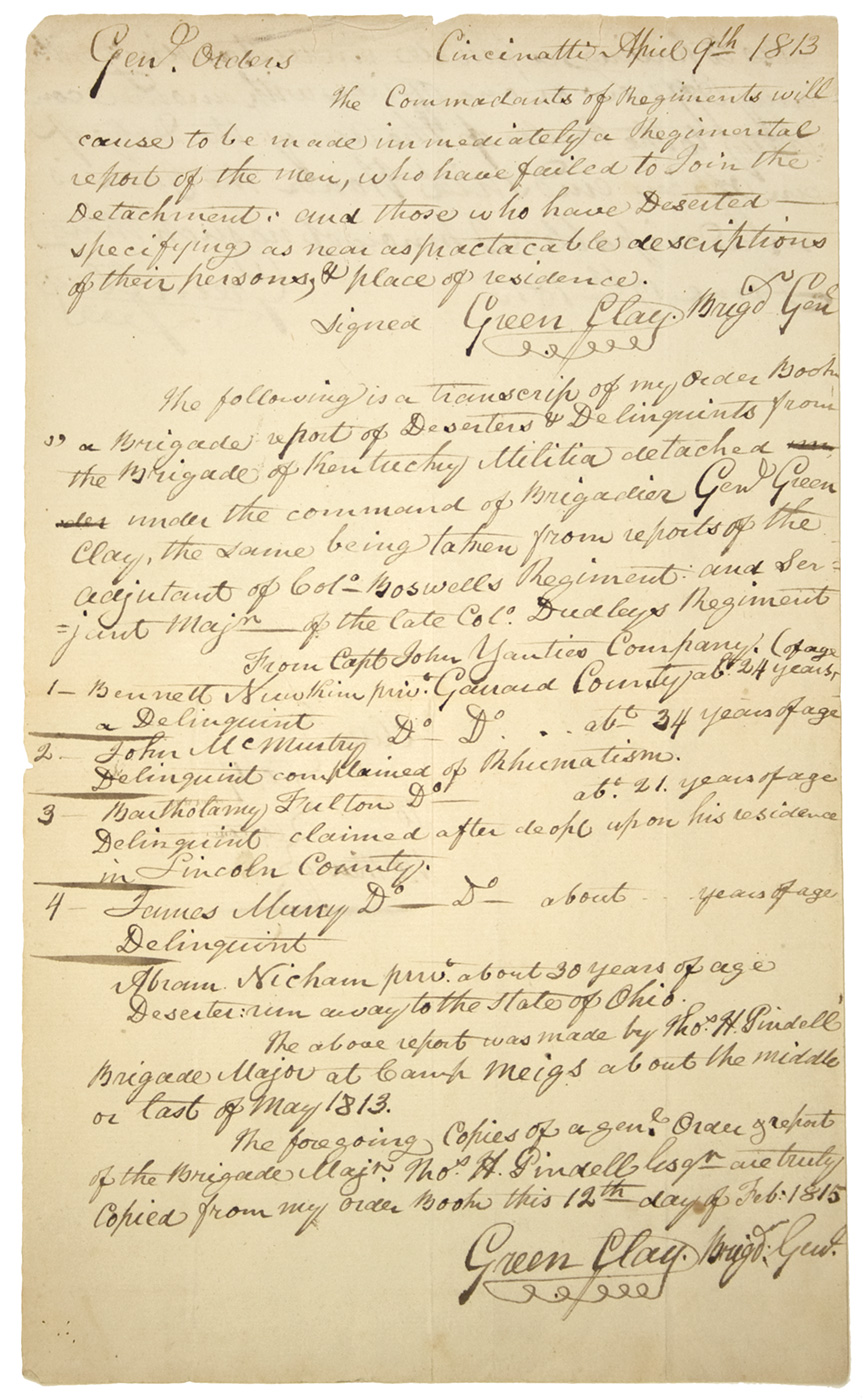 Genl. Orders Cincinatti April 9th 1813
The Commadants of Regiments will
cause to be made immediately a Regimental
report of the men, who have failed to Join the
Detachment: and those who have Deserted —
specifying as near as practacable descriptions
of their persons, & place of residence.
Signed Green Clay. Brigd Genl
The following is a transcrip of my order Book
a Brigade report of Deserters & Delinquints from
the Brigade of Kentucky Militia detached
under the command of Brigadier Genl Green
Clay, the same being taken from reports of the
adjutant of Colo Boswells Regiment: and Ser=
=jant Majr — of the late Colo. Dudleys Regiment
From Capt John Yanties Company. (of age
1 — Bennett Newkim privt. Garrard County abt. 24 years,
a Delinquint
2 — John McMurtry Do — Do . . abt 34 years of age
Delinquint complained of Rhumatism.
3 — Bartholamy Fulton Do — abt. 21. years of age
Delinquint claimed after deopt upon his residence
in Lincoln County.
4 — James Murry Do — Do — about years of age
Delinquint
Abram Nicham privt. about 30 years of age
Deserter: run away to the state of Ohio.
The above report was made by Thos. H. Pindell
Brigade Major at Camp Meigs about the middle
or last of May 1813.
The foregoing Copies of a genl. Order & report
of the Brigade Majr. Thos. H. Pindell Esqr are truly
Copied from my order Book this 12th day of Feb: 1815
Green Clay. Brigd. Genl.